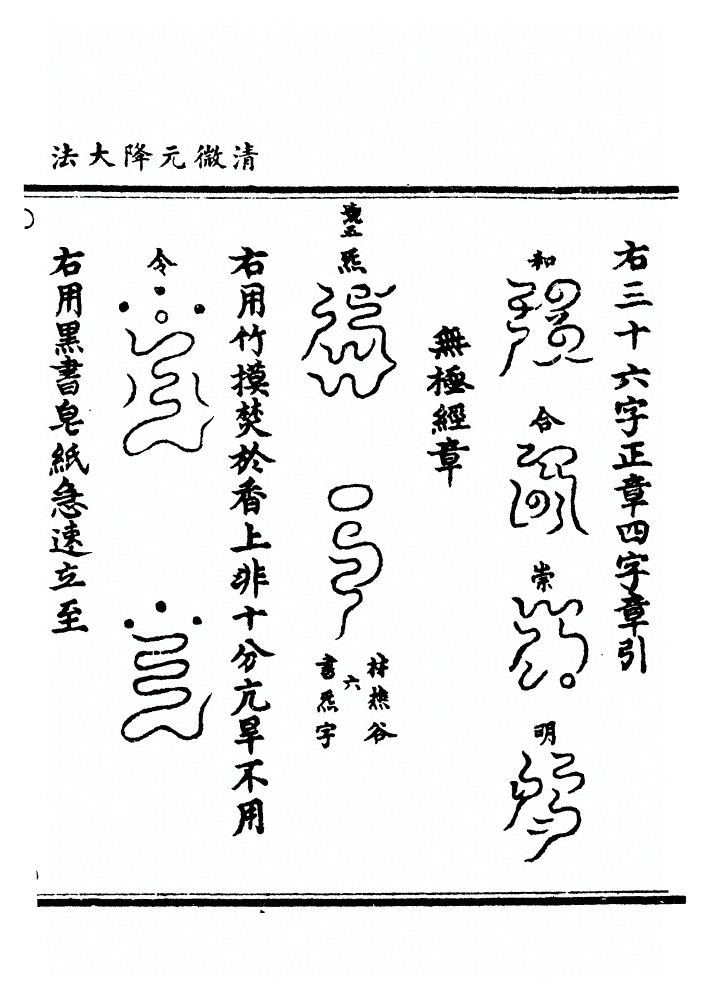 清微元降大法
右三十六字正章四字章引
和
合
崇
明
無極經章
炁
六
書炁字
右用竹摸焚於香上非十分亢旱不用
令
右用黑書皂紙急速立至